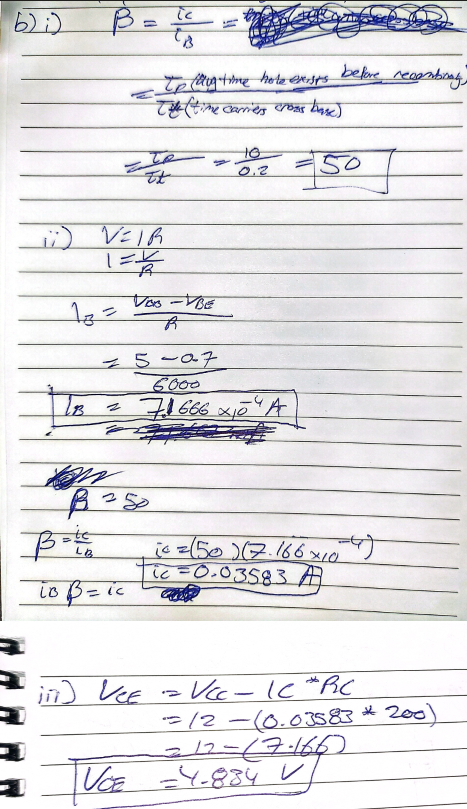 b) i) β = ic/iB =
= τp (avg time hole exists before recombining)/τt (time carriers cross base)
= τp/τt = 10/0.2 = 50
ii) V = IR
I = V/R
IB = VBB - VBE/R
= 5 - 0.7/6000
IB = 7.1666 x10^-4 A
=
β = 50
β = ic/iB ic = (50)(7.166 x10^-4)
iB β = ic ic = 0.03583 A
iii) VCE = VCC - IC * RC
= 12 - (0.03583 * 200)
= 12 - (7.166)
VCE = 4.834 V